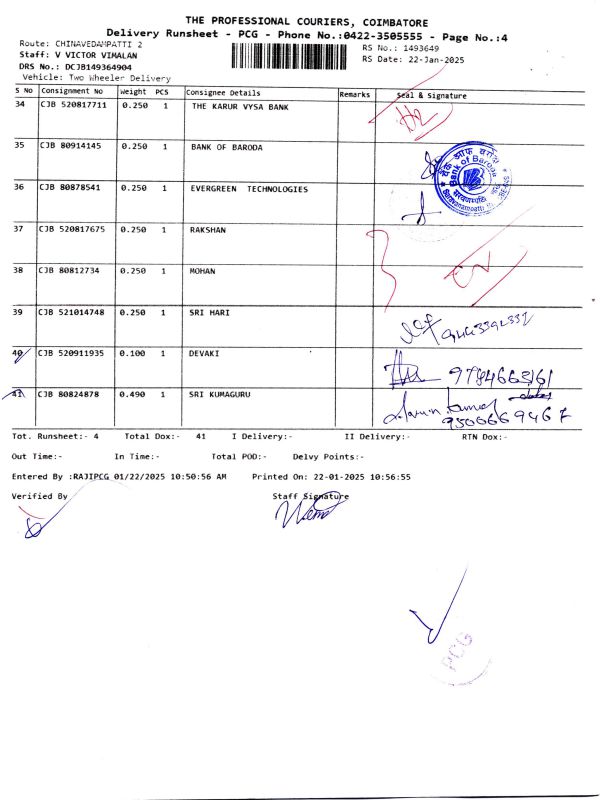 THE PROFESSIONAL COURIERS, COIMBATORE
Delivery Runsheet - PCG - Phone No.:0422-3505555 - Page No.:4
Route: CHINAVEDAMPATTI 2
Staff: V VICTOR VIMALAN
DRS No.: DCJB149364904
Vehicle: Two Wheeler Delivery
RS No.: 1493649
RS Date: 22-Jan-2025
S No Consignment No Weight PCS Consignee Details Remarks Seal & Signature
34 CJB 520817711 0.250 1 THE KARUR VYSA BANK
35 CJB 80914145 0.250 1 BANK OF BARODA
बैंक ऑफ़ बड़ौदा
Bank of Baroda
36 CJB 80878541 0.250 1 EVERGREEN TECHNOLOGIES
37 CJB 520817675 0.250 1 RAKSHAN
38 CJB 80812734 0.250 1 MOHAN
39 CJB 521014748 0.250 1 SRI HARI
40 CJB 520911935 0.100 1 DEVAKI
41 CJB 80824878 0.490 1 SRI KUMAGURU
9506669467
Tot. Runsheet:- 4 Total Dox:- 41 I Delivery:- II Delivery:- RTN Dox:-
Out Time:- In Time:- Total POD:- Delvy Points:-
Entered By :RAJIPCG 01/22/2025 10:50:56 AM Printed On: 22-01-2025 10:56:55
Verified By Staff Signature
PCG